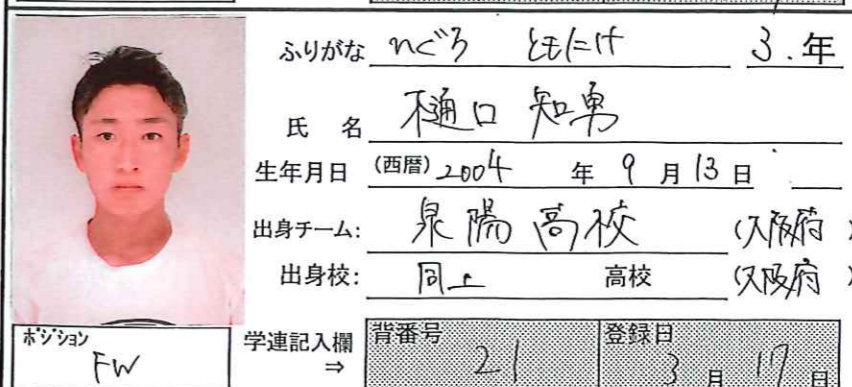 ふりがな ひぐち ともたけ 3.年
氏 名 樋口 知勇
生年月日 (西暦) 2004 年 9 月 13 日
出身チーム: 泉陽高校 (大阪府)
出身校: 同上 高校 (大阪府)
ポジション
FW
学連記入欄
⇒
背番号
21
登録日
3 月 17 日